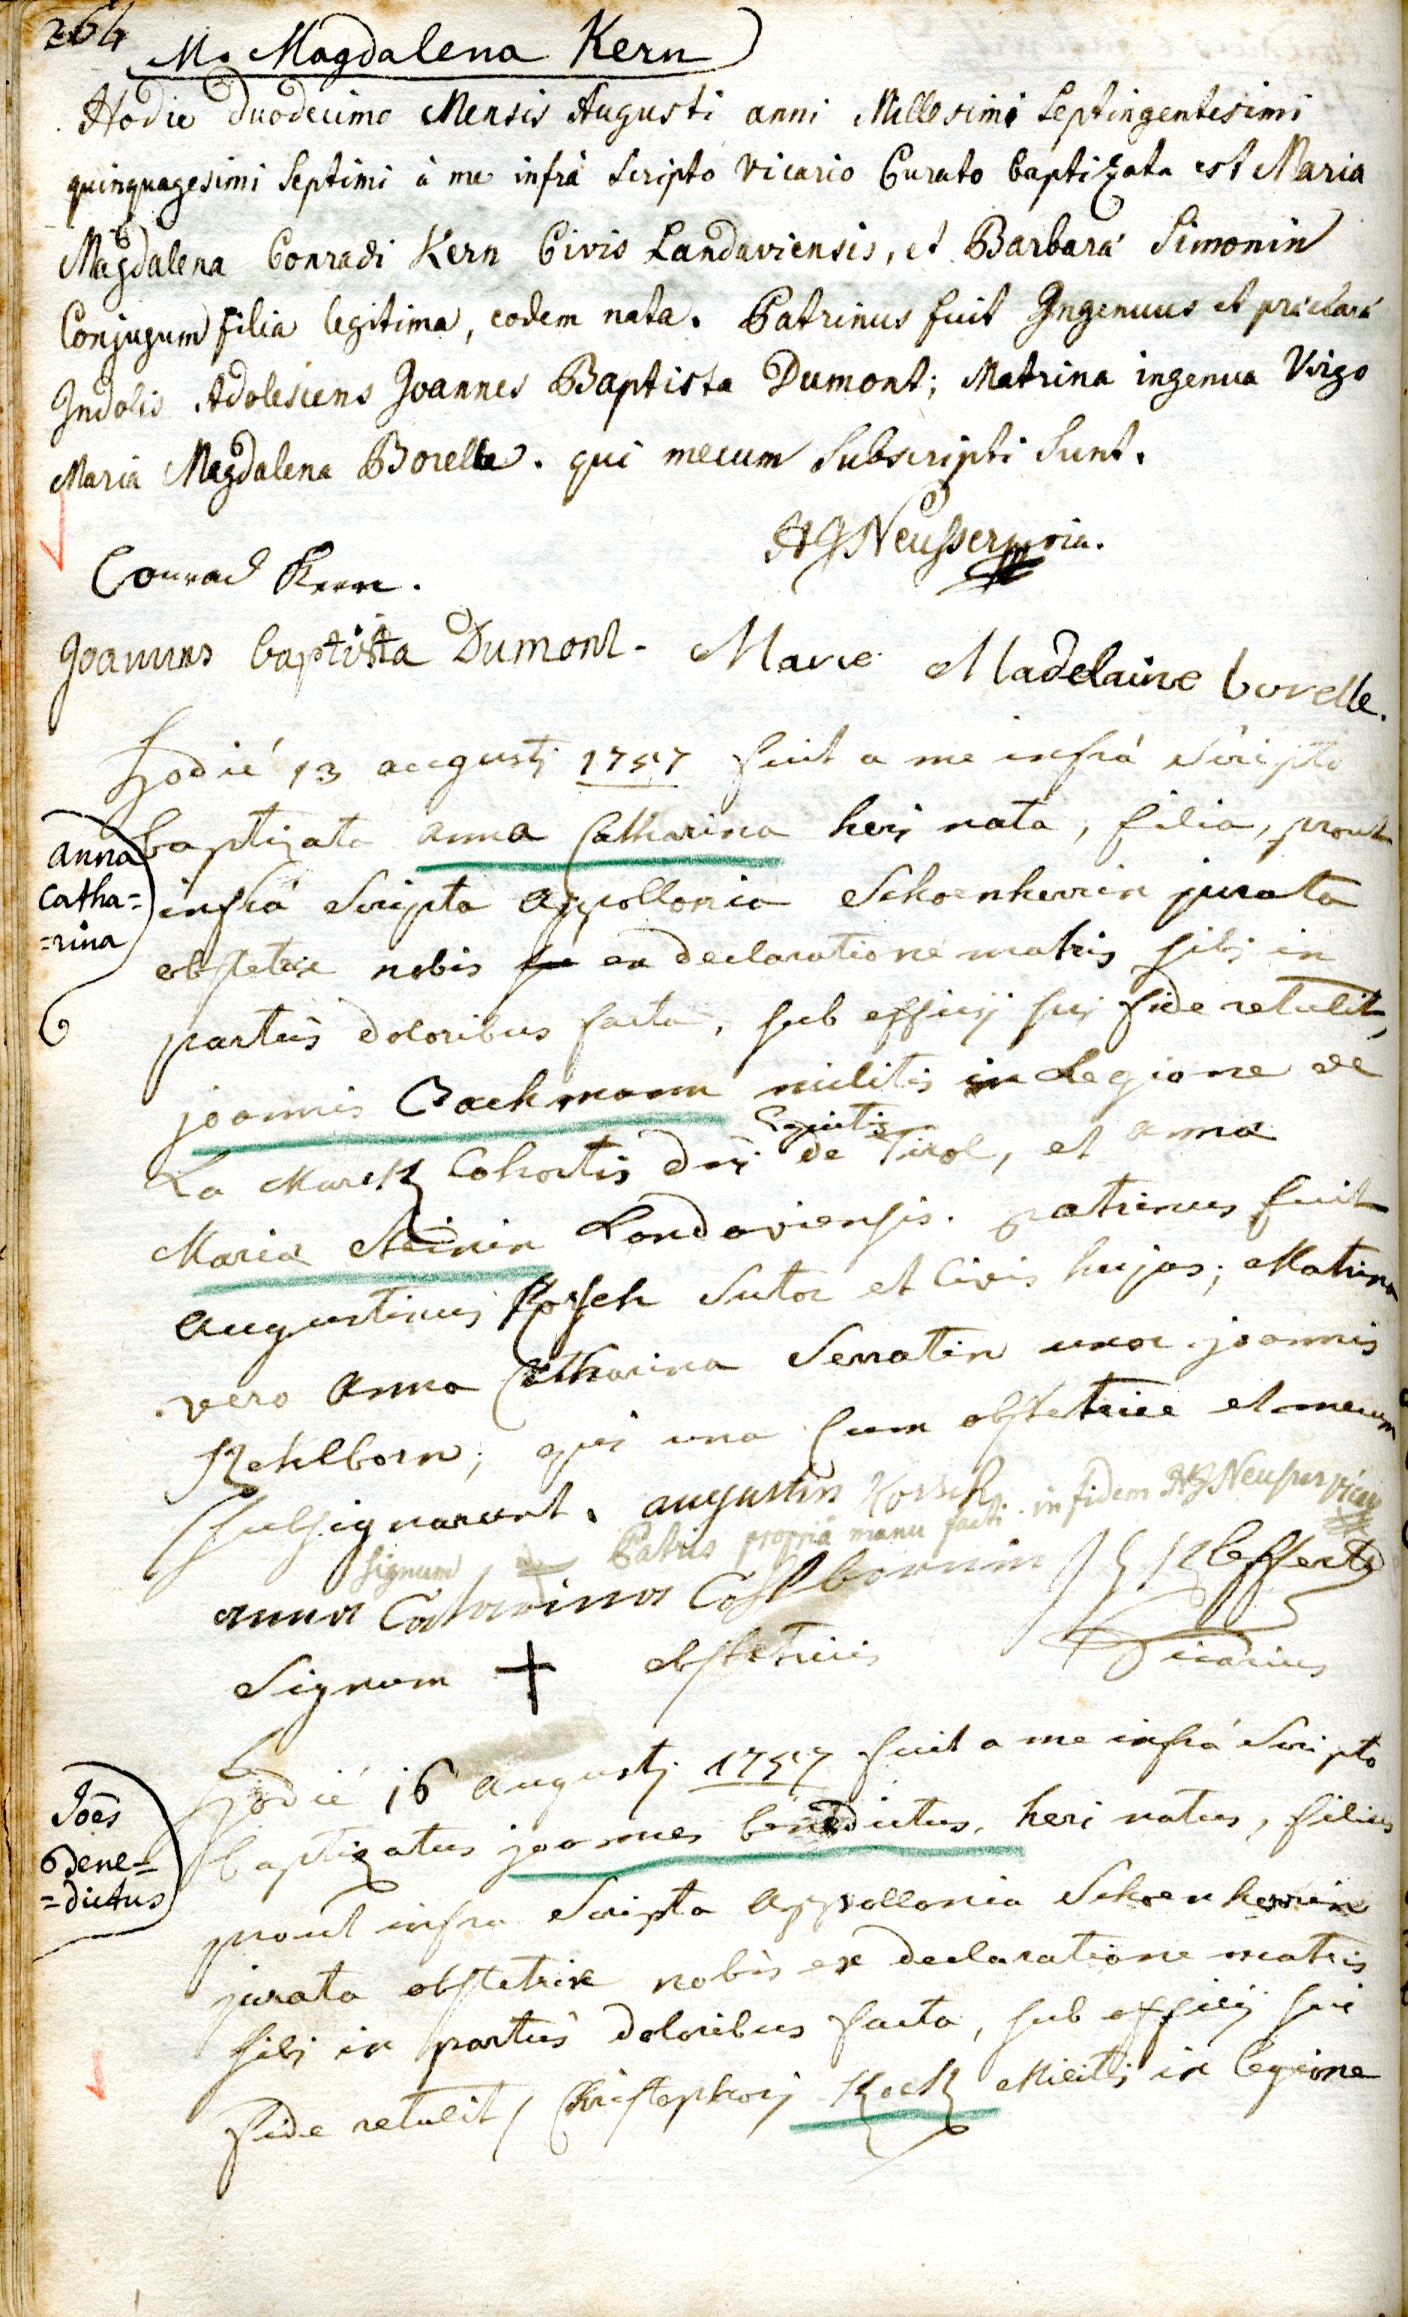 264
M. Magdalena Kern
Hodie duodecimo Mensis Augusti anni Millesimi Septingentesimi
quinquagesimi Septimi à me infrà scripto Vicario Curato baptizata est Maria
Magdalena Conradi Kern Civis Landaviensis, et Barbarà Simonin
Conjugum filia legitima, eodem nata. Patrinus fuit Ingenuus et præclarà
Indolis Adolescens Joannes Baptista Dumont; Matrina ingenua Virgo
Maria Magdalena Borelle. qui mecum Subscripti Sunt.
HGNeusser
Conrad Kern.
Joannes baptista Dumont. Marie Madelaine borelle.
hodiè 13 augustj 1757 fuit a me infrà scripto
baptizata anna Catharina herj nata, filia, prout
anna
catha=
=rina
infrà scripta appollonia Schoenherrin jurata
obstetrix nobis ex declaratione matris sibj in
partûs doloribus facta, sub officij suj fide retulit,
joannis Bachmann militis in Legione de
La Marck Cohortis dnj Equitis de Tirol, et anna
Maria Steinin Landaviensis. patrinus fuit
augustinus Korsch Sutor et Civis hujas; Matrina
vero anna Catharina Serratin uxor joannis
Kehlborn; qui una cum obstetrice et mecum
subsignarunt. augustin Korsch. in fidem HGNeusser
Signum Patris propriâ manu facti
anna Catarina
Signum + obstetricis Vicarius
hodiè 16 augustj 1757 fuit a me infrà scripto
Joês
Bene=
=dictus
baptizatus joannes benedictus, heri natus, filius
prout infra scripta appollonia Schoenherrin
jurata obstetrix nobis ex declaratione matris
sibj in partûs doloribus facta, sub officij sui
fide retulit, Christophorj Keck Militis in legione